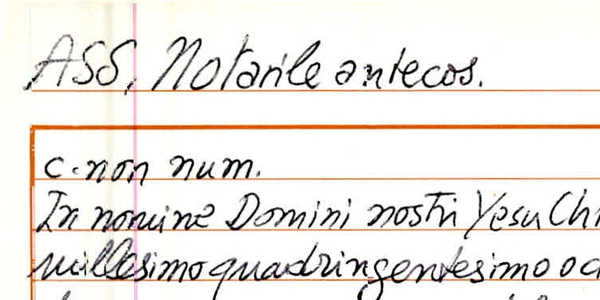 ASS, Notarile antecos.
c. non num.
In nomine Domini nostri Yesu Chr
millesimo quadringentesimo oc